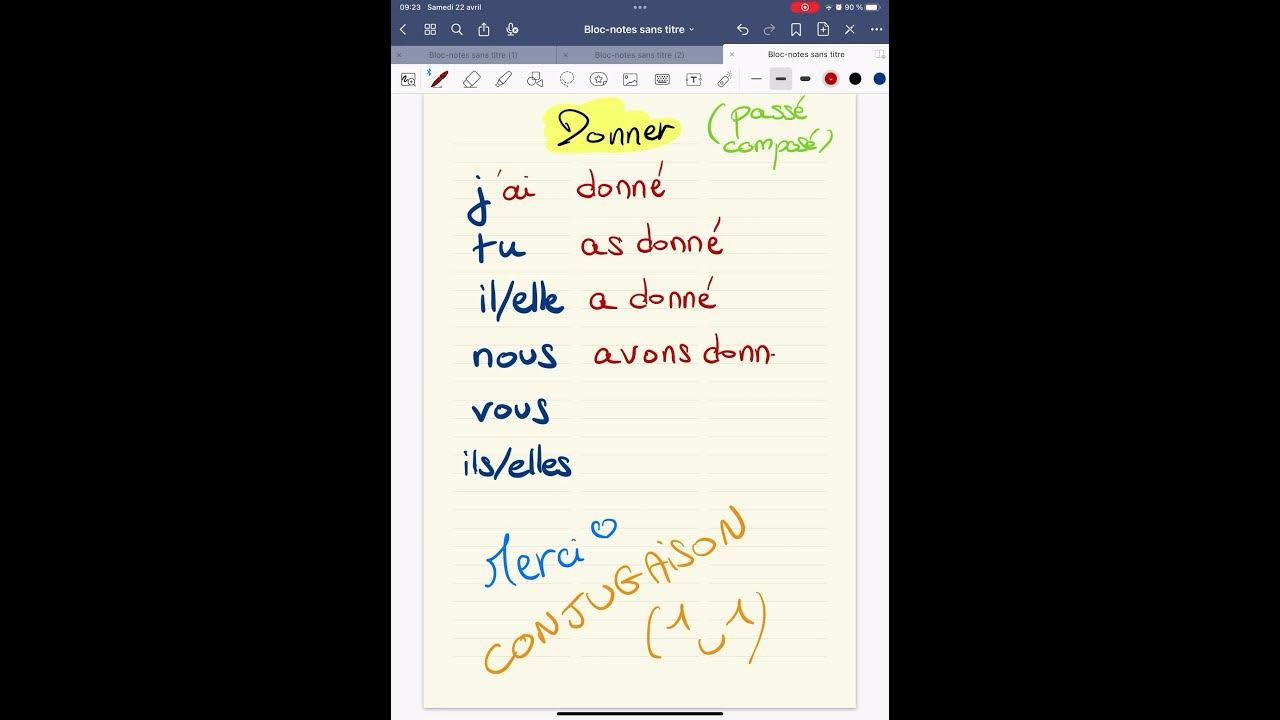 09:23 Samedi 22 avril
90 %
Bloc-notes sans titre
Bloc-notes sans titre (1)
Bloc-notes sans titre (2)
Bloc-notes sans titre
Donner
(passé
composé)
j'ai donné
tu as donné
il/elle a donné
nous avons donn
vous
ils/elles
Merci
CONJUGAISON